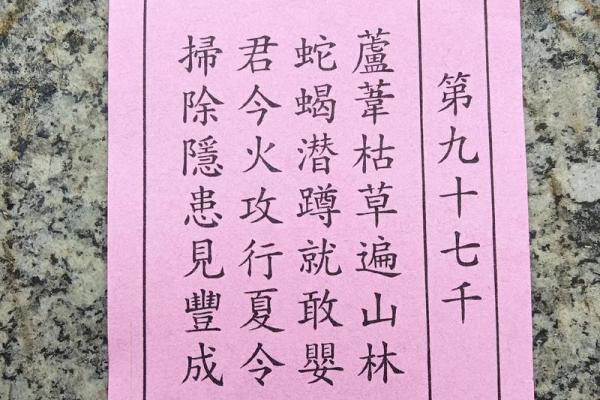 第九十七千
蘆葦枯草遍山林
蛇蝎潛蹲就敢嬰
君今火攻行夏令
掃除隱患見豐成